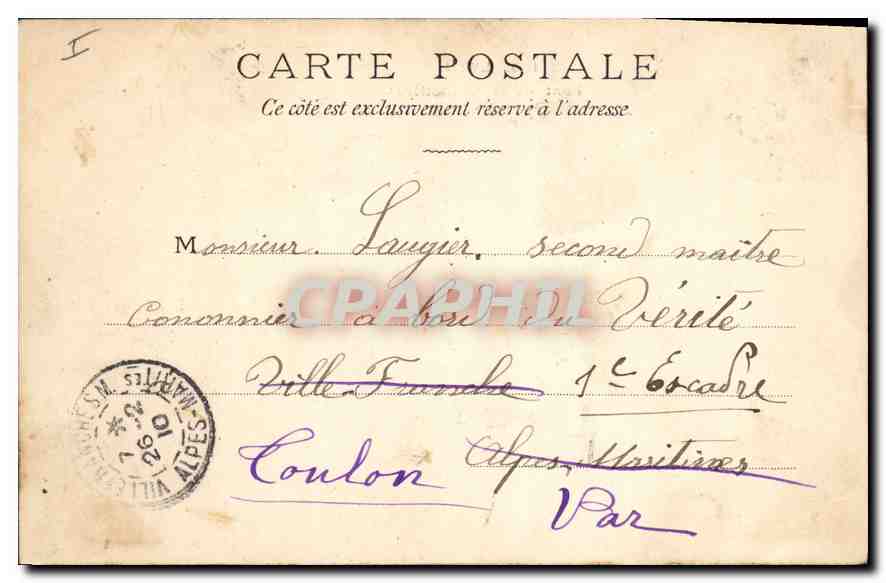 I
CARTE POSTALE
Ce côté est exclusivement réservé à l'adresse
Monsieur. Laugier, second maître
Cononnier à bord du Vérité
Ville Franche 1e Escadre
Alpes Maritimes
Toulon
Var
CPAPHIL
ALPES-MARITES
7 * 
26 -2
10